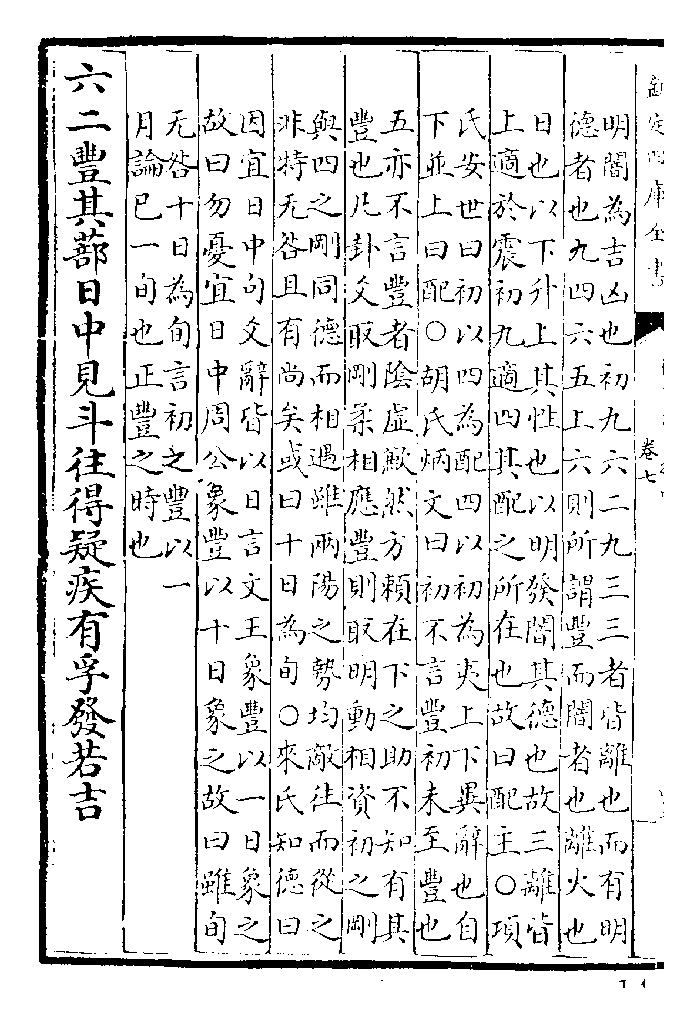 欽定四庫全書
卷七
明闇為吉凶也初九六二九三三者皆離也而有明
德者也九四六五上六則所謂豐而闇者也離火也
日也以下升上其性也以明發闇其德也故三離皆
上適於震初九適四其配之所在也故曰配主○項
氏安世曰初以四為配四以初為夷上下異辭也自
下並上曰配○胡氏炳文曰初不言豐初未至豐也
五亦不言豐者陰虛歉然方賴在下之助不知有其
豐也凡卦爻取剛柔相應豐則取明動相資初之剛
與四之剛同德而相遇雖兩陽之勢均敵往而從之
非特无咎且有尚矣或曰十日為旬○來氏知德曰
因宜日中句爻辭皆以日言文王象豐以一日象之
故曰勿憂宜日中周公象豐以十日象之故曰雖旬
无咎十日為旬言初之豐以一
月論已一旬也正豐之時也
六二豐其蔀日中見斗往得疑疾有孚發若吉